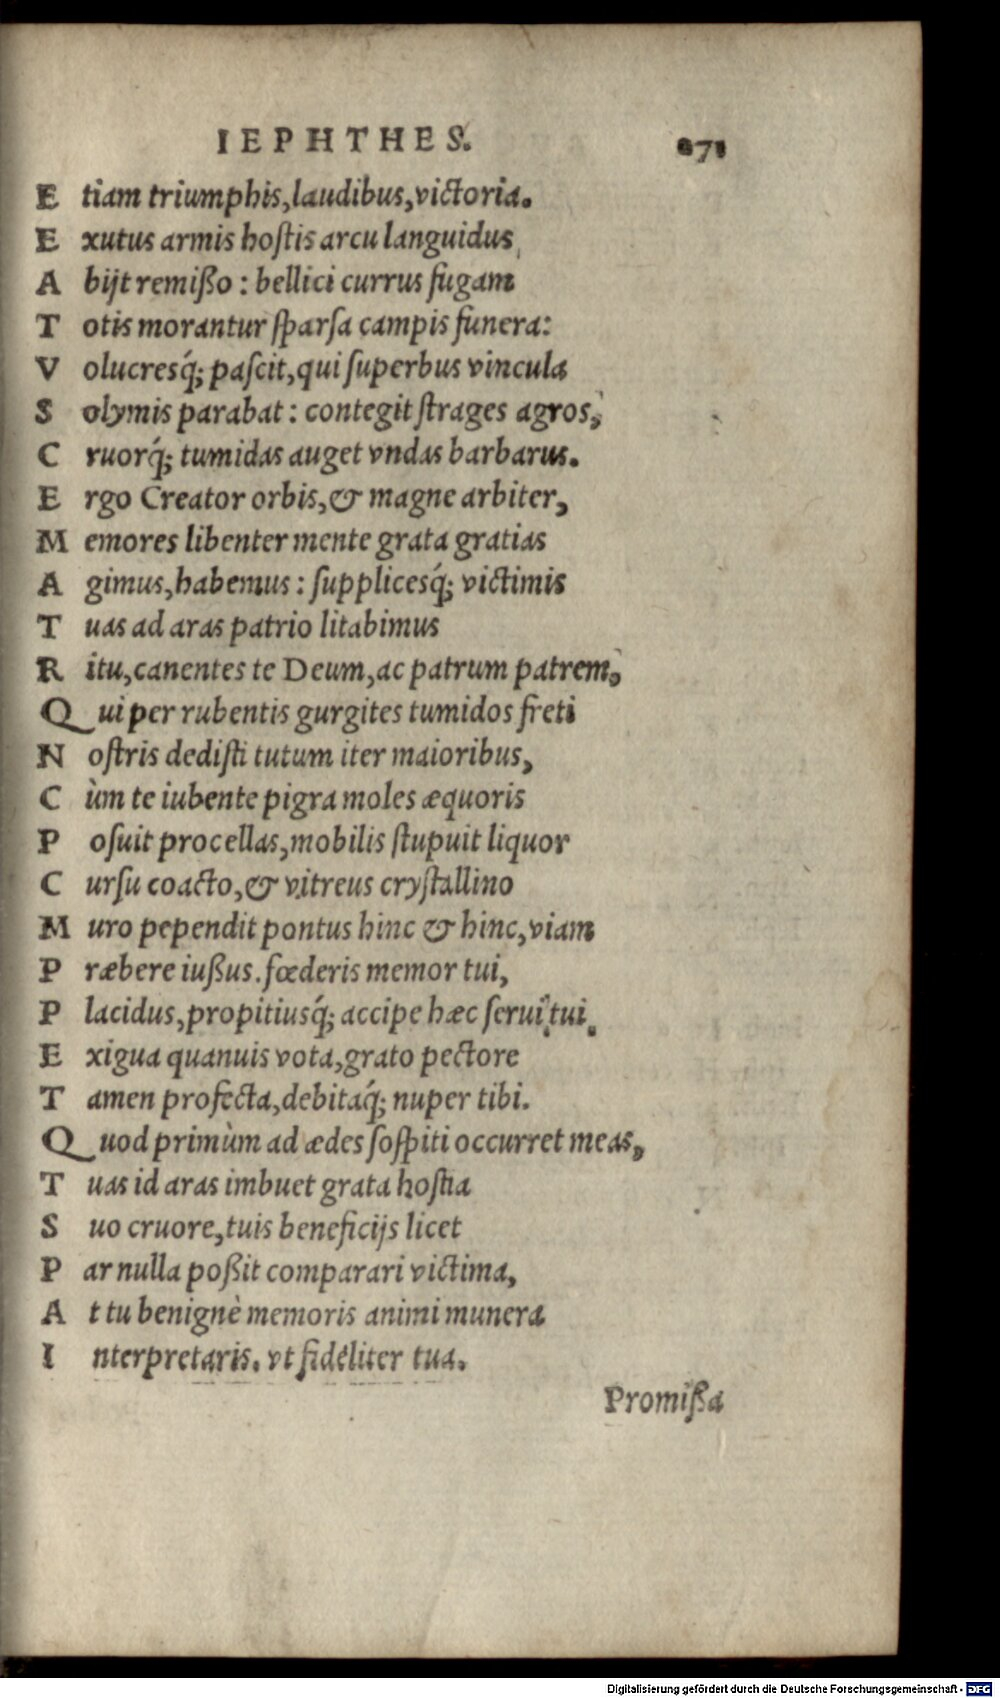 IEPHTHES. 271
E tiam triumphis, laudibus, victoria.
E xutus armis hoſtis arcu languidus
A bijt remißo: bellici currus fugam
T otis morantur ſparſa campis funera:
V olucresq́; paſcit, qui ſuperbus vincula
S olymis parabat: contegit ſtrages agros,
C ruorq́; tumidas auget vndas barbarus.
E rgo Creator orbis, & magne arbiter,
M emores libenter mente grata gratias
A gimus, habemus: ſupplicesq́; victimis
T uas ad aras patrio litabimus
R itu, canentes te Deum, ac patrum patrem,
Q ui per rubentis gurgites tumidos freti
N oſtris dediſti tutum iter maioribus,
C ùm te iubente pigra moles æquoris
P oſuit procellas, mobilis ſtupuit liquor
C urſu coacto, & vitreus cryſtallino
M uro pependit pontus hinc & hinc, viam
P ræbere iußus. fœderis memor tui,
P lacidus, propitiusq́; accipe hæc ſerui tui.
E xigua quanuis vota, grato pectore
T amen profecta, debitaq́; nuper tibi.
Q uod primùm ad ædes ſoſpiti occurret meas,
T uas id aras imbuet grata hoſtia
S uo cruore, tuis beneficijs licet
P ar nulla poßit comparari victima,
A t tu benignè memoris animi munera
I nterpretaris. vt fideliter tua.
Promißa
Digitalisierung gefördert durch die Deutsche Forschungsgemeinschaft - DFG